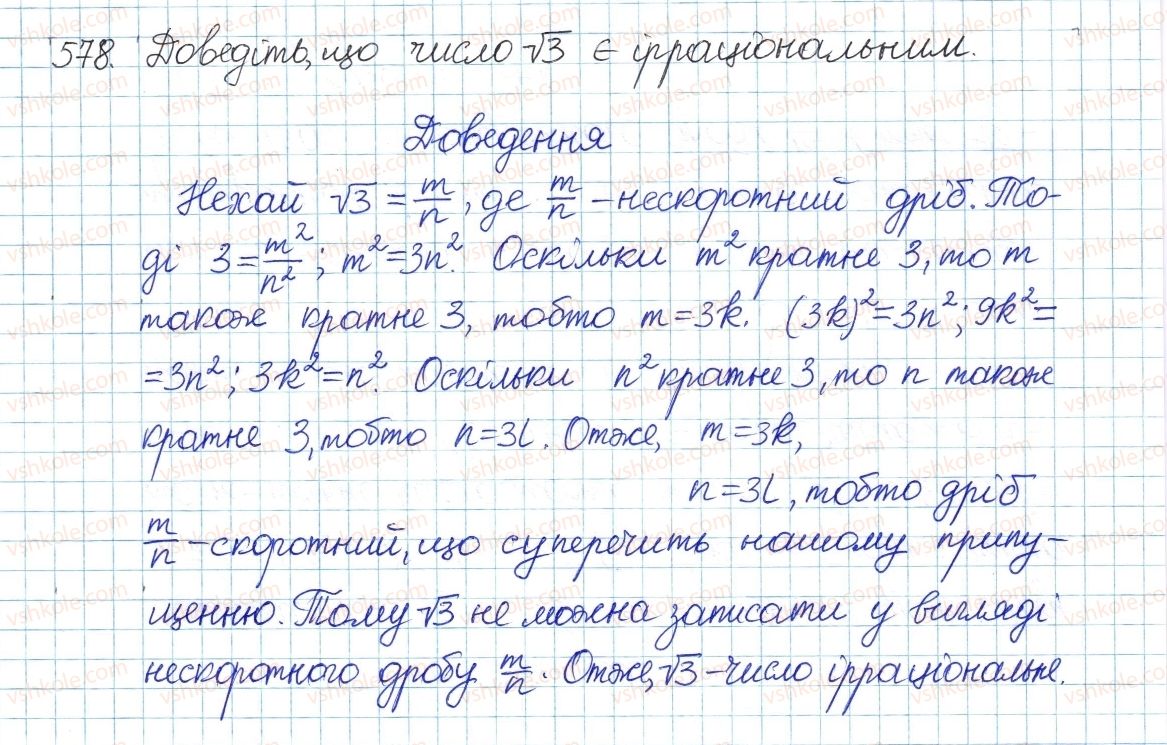 578. Доведіть, що число √3 є ірраціональним.
Доведення
Нехай √3 = m/n, де m/n – нескоротний дріб. То-
ді 3 = m²/n²; m² = 3n². Оскільки m² кратне 3, то m
також кратне 3, тобто m = 3k. (3k)² = 3n²; 9k² =
= 3n²; 3k² = n². Оскільки n² кратне 3, то n також
кратне 3, тобто n = 3l. Отже, m = 3k,
n = 3l, тобто дріб
m/n – скоротний, що суперечить нашому припу-
щенню. Тому √3 не можна записати у вигляді
нескоротного дробу m/n. Отже, √3 – число ірраціональне.